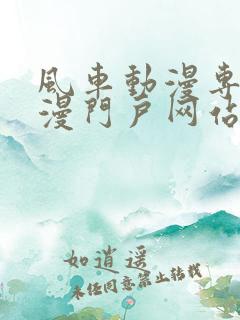 風車動漫專
漫門戶网站
如逍遥
未任同意禁止转载